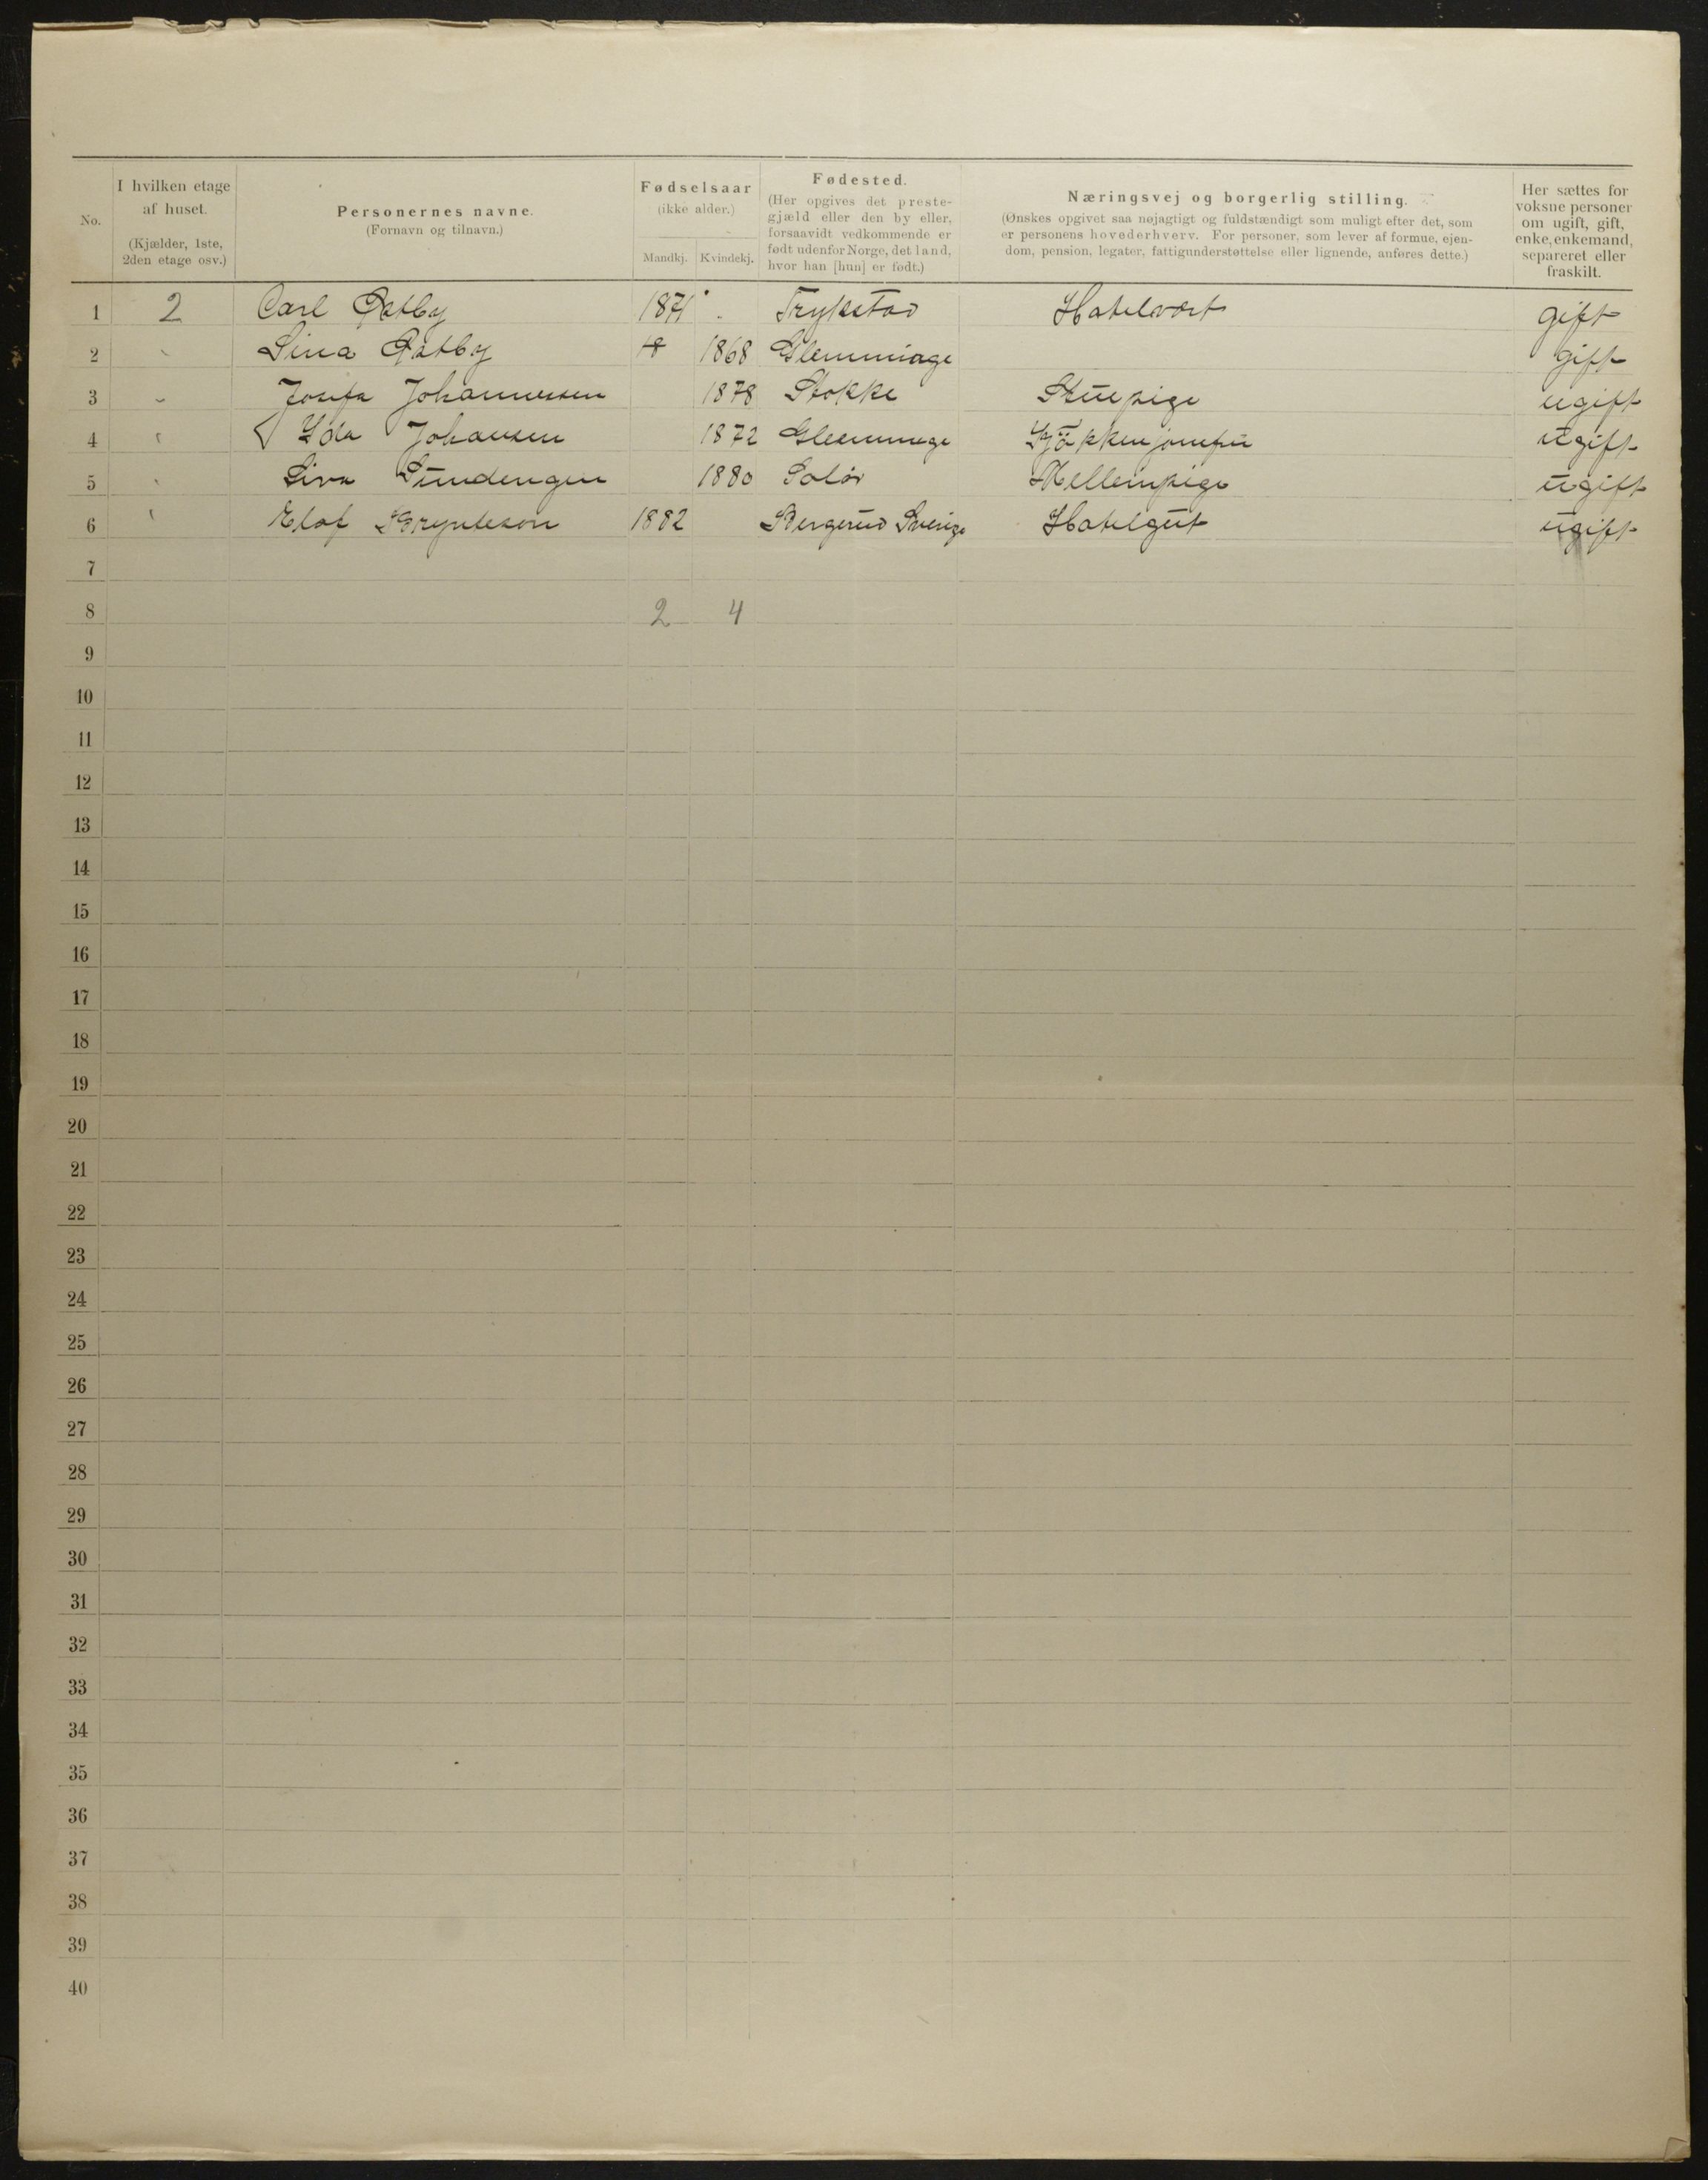 No. I hvilken etage af huset. (Kjælder, 1ste, 2den etage osv.) Personernes navne. (Fornavn og tilnavn.) Fødselsaar (ikke alder.) Mandkj. Kvindekj. Fødested. (Her opgives det prestegjæld eller den by eller, forsaavidt vedkommende er født udenfor Norge, det land, hvor han [hun] er født.) Næringsvej og borgerlig stilling. (Ønskes opgivet saa nøjagtigt og fuldstændigt som muligt efter det, som er personens hovederhverv. For personer, som lever af formue, ejendom, pension, legater, fattigunderstøttelse eller lignende, anføres dette.) Her sættes for voksne personer om ugift, gift, enke, enkemand, separeret eller fraskilt.
1 2 Carl 1871 Trykstad Hotelvært gift
2 Lina 18 1868 Glemminge gift
3 Josefa Johannessen 1878 Stokke Stuepige ugift
4 Ida Johansen 1872 Glemminge Kjökkenjomfru ugift
5 1880 Solør Mellempige ugift
6 Elof 1882 Sverige Hotelgut ugift
7
8 2 4
9
10
11
12
13
14
15
16
17
18
19
20
21
22
23
24
25
26
27
28
29
30
31
32
33
34
35
36
37
38
39
40